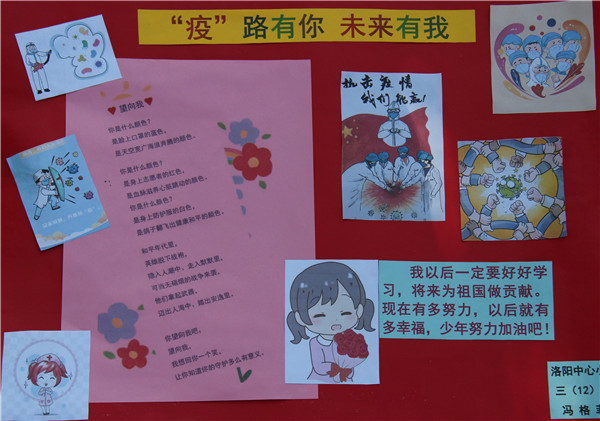 “疫”路有你 未来有我
望向我
你是什么颜色?
是脸上口罩的蓝色。
是天空宽广海浪奔腾的颜色。
你是什么颜色?
是身上志愿者的红色。
是血脉滋养心脏跳动的颜色。
你是什么颜色?
是身上防护服的白色。
是鸽子翻飞出健康和平的颜色。
和平年代里,
英雄脱下战袍,
隐入人潮中,走入默默里。
可当无硝烟的战争来袭,
他们拿起武器,
迈出人海中、踏出安逸里。
你望向我吧。
望向我。
我想回你一个笑。
让你知道你的守护多么有意义。
抗击疫情
我们能赢!
我以后一定要好好学
习,将来为祖国做贡献。
现在有多努力,以后就有
多幸福,少年努力加油吧!
洛阳中心小
三(12)
冯格